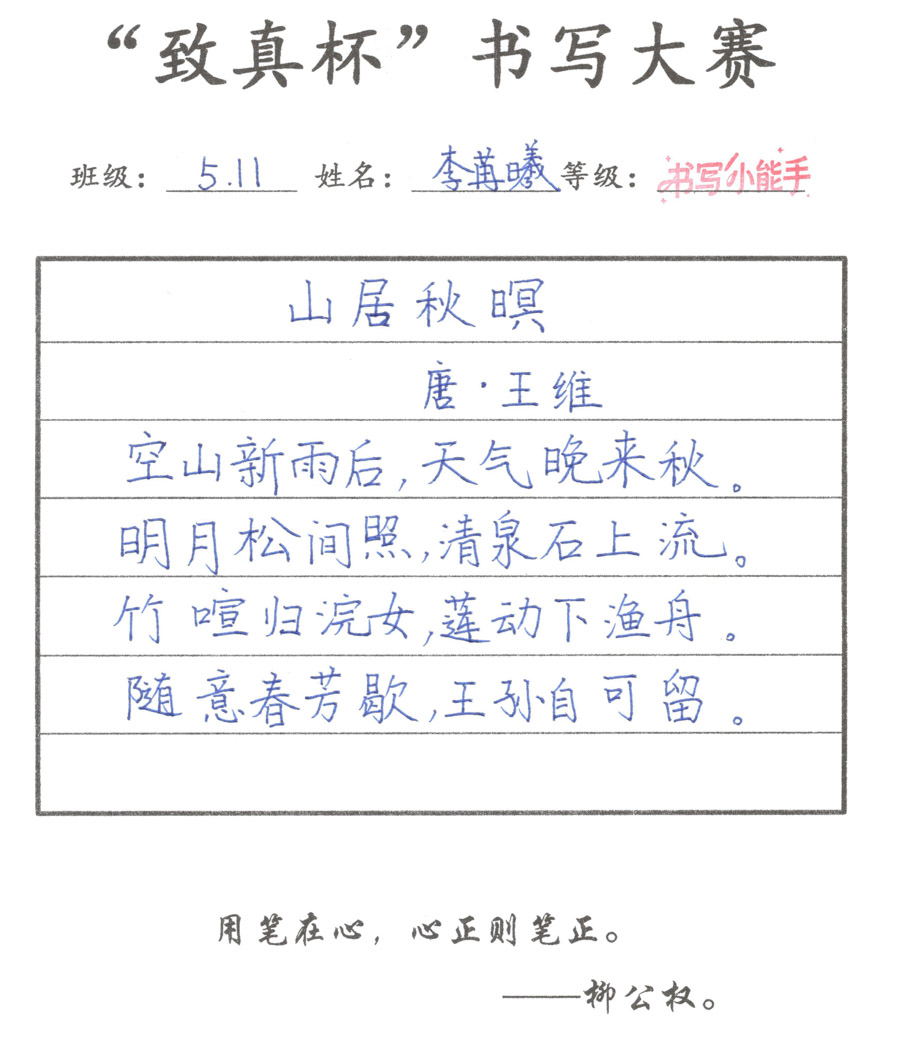 “致真杯”书写大赛
班级：5.11 姓名：李苒曦等级：书写小能手
山居秋暝
唐·王维
空山新雨后,天气晚来秋。
明月松间照,清泉石上流。
竹喧归浣女,莲动下渔舟。
随意春芳歇,王孙自可留。
用笔在心，心正则笔正。
——柳公权。